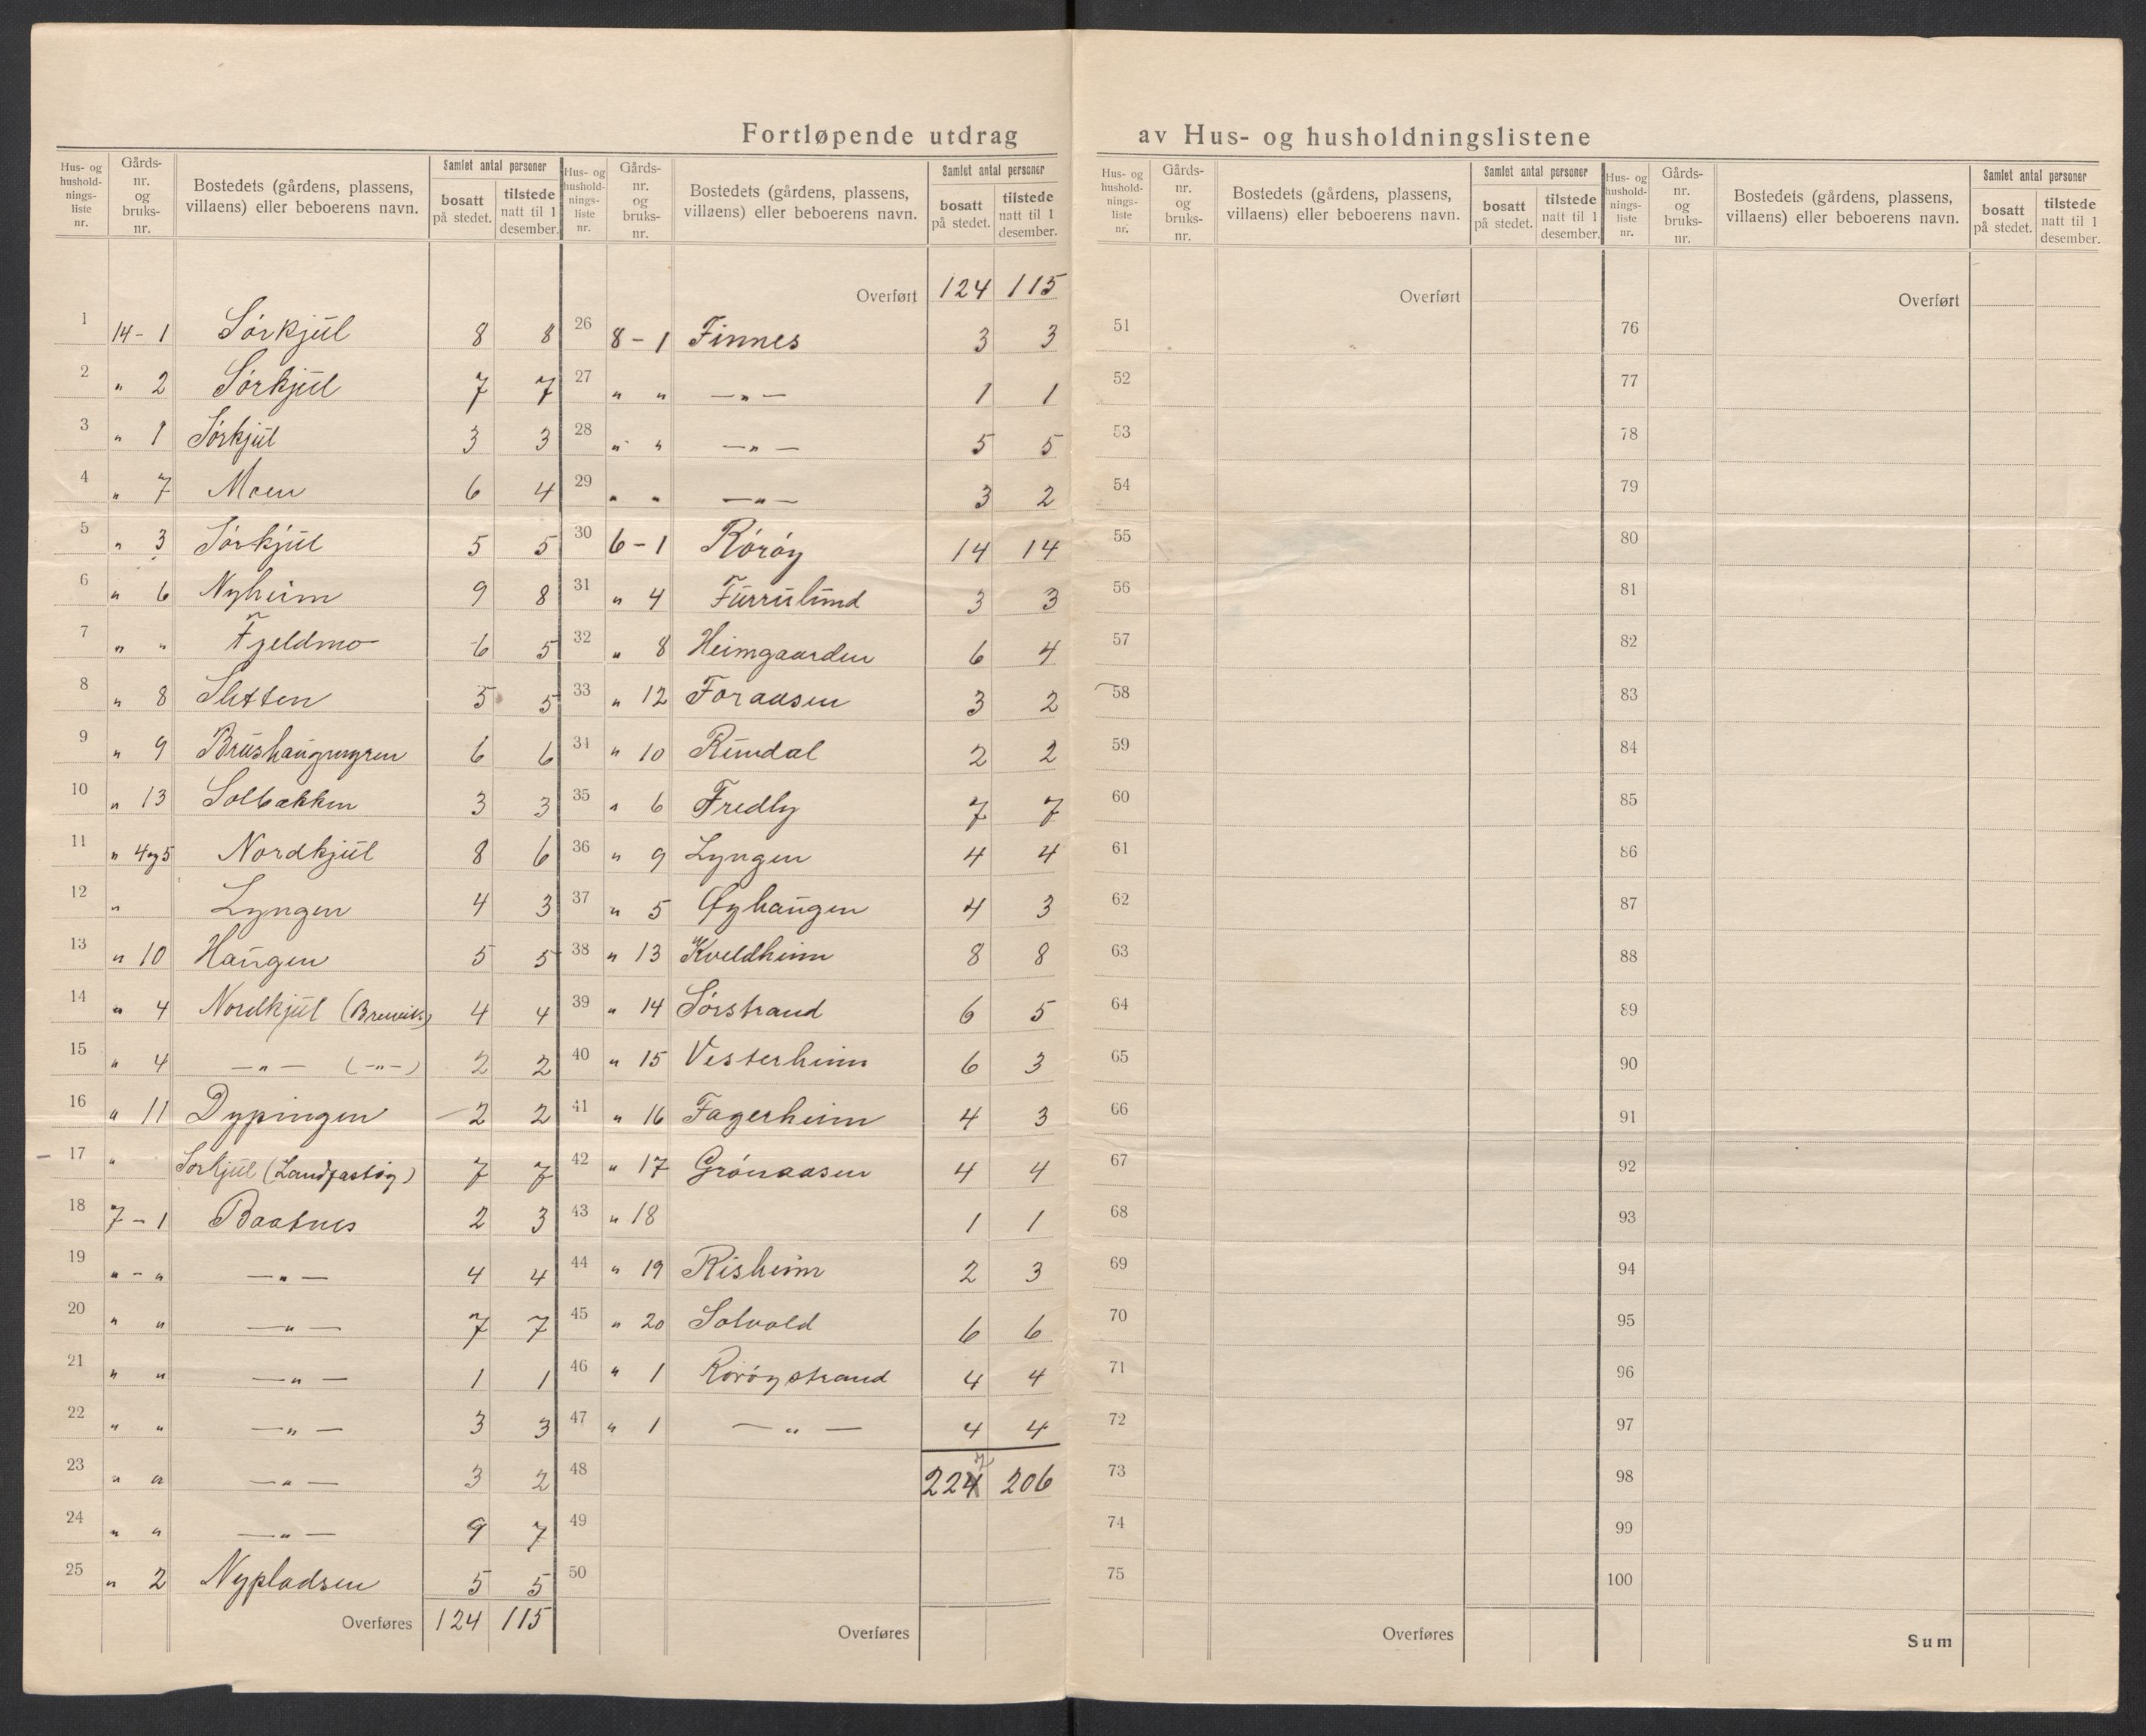 Fortløpende utdrag av Hus- og husholdningslistene
Hus- og hushold-nings-liste nr. Gårds-nr. og bruks-nr. Bostedets (gårdens, plassens, villaens) eller beboerens navn. Samlet antal personer bosatt på stedet. tilstede natt til 1 desember.
1 14-1 Sørkjül 8 8
2 " 2 Sørkjül 7 7
3 " 1 Sørkjül 3 3
4 " 7 Moen 6 4
5 " 3 Sørkjül 5 5
6 " 6 Nyheim 9 8
7 " " Fjeldmo 6 5
8 " 8 Sletten 5 5
9 " 9 6 6
10 " 13 Solbakken 3 3
11 " 4og5 Nordkjül 8 6
12 " Lyngen 4 3
13 " 10 Haügen 5 5
14 " 4 Nordkjül 4 4
15 " 4 —"— (—"—) 2 2
16 " 11 Dypingen 2 2
17 " Sørkjül (Landfastøy) 7 7
18 7-1 Baatnes 2 3
19 "-" —"— 4 4
20 " " —"— 7 7
21 " " —"— 1 1
22 " " —"— 3 3
23 " " —"— 3 2
24 " " —"— 9 7
25 " 2 Nypladsen 5 5
Overføres 124 115
Hus- og hushold-nings-liste nr. Gårds-nr. og bruks-nr. Bostedets (gårdens, plassens, villaens) eller beboerens navn. Samlet antal personer bosatt på stedet. tilstede natt til 1 desember.
Overført 124 115
26 8-1 Finnes 3 3
27 " " —"— 1 1
28 " " —"— 5 5
29 " " —"— 3 2
30 6-1 Rørøy 14 14
31 " 4 Fürrülünd 3 3
32 " 8 Heimgaarden 6 4
33 " 12 Foraasen 3 2
34 " 10 Rimdal 2 2
35 " 6 Fredly 7 7
36 " 9 Lyngen 4 4
37 " 5 Øyhaügen 4 3
38 " 13 Kveldheim 8 8
39 " 14 Sørstrand 6 5
40 " 15 Vesterheim 6 3
41 " 16 Fagerheim 4 3
42 " 17 Grønaasen 4 4
43 " 18 1 1
44 " 19 Risheim 2 3
45 " 20 Solvold 6 6
46 " 1 Rørøystrand 4 4
47 " 1 —"— 4 4
48 2247 206
49
50
Overføres
Hus- og hushold-nings-liste nr. Gårds-nr. og bruks-nr. Bostedets (gårdens, plassens, villaens) eller beboerens navn. Samlet antal personer bosatt på stedet. tilstede natt til 1 desember.
Overført
51
52
53
54
55
56
57
58
59
60
61
62
63
64
65
66
67
68
69
70
71
72
73
74
75
Overføres
Hus- og hushold-nings-liste nr. Gårds-nr. og bruks-nr. Bostedets (gårdens, plassens, villaens) eller beboerens navn. Samlet antal personer bosatt på stedet. tilstede natt til 1 desember.
Overført
76
77
78
79
80
81
82
83
84
85
86
87
88
89
90
91
92
93
94
95
96
97
98
99
100
Sum